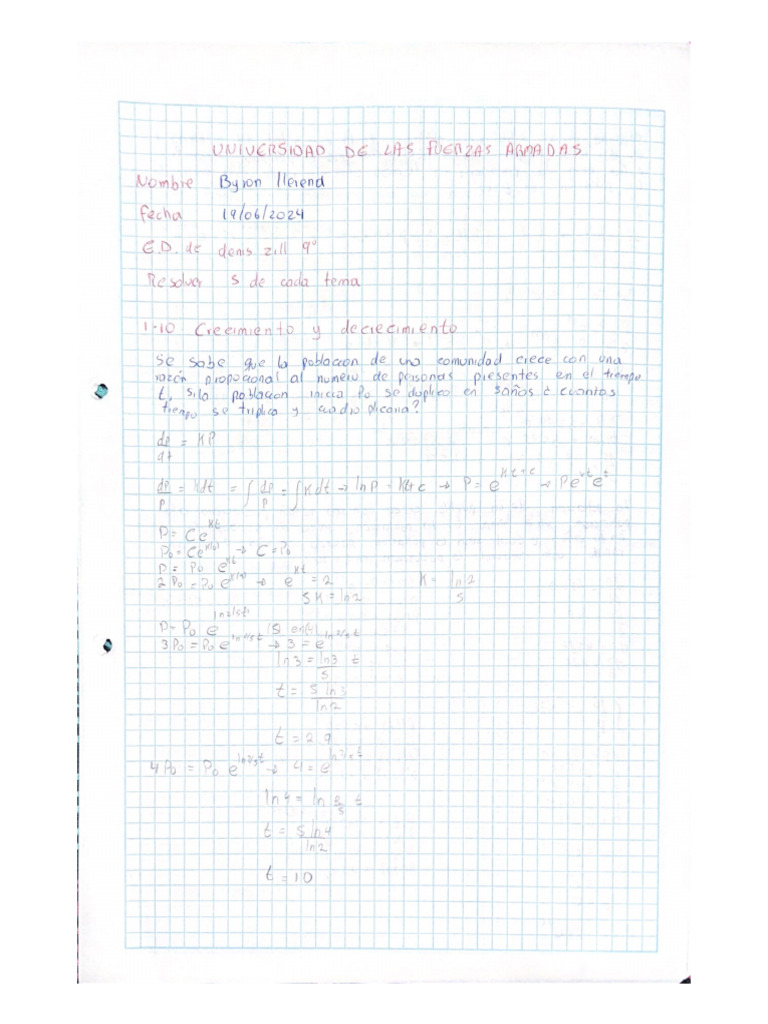 UNIVERSIDAD DE LAS FUERZAS ARMADAS
Nombre Byron llerena
fecha 19/06/2024
E.D. de denis zill 9°
Resolver 5 de cada tema
1-10 Crecimiento y decrecimiento
Se sabe que la poblacion de una comunidad crece con una
razón propocional al numero de personas presentes en el tiempo
t, si la poblacion inicia Po se duplico en 5 años ¿ cuantos
tiempo se triplica y cuadriplicaria?
dp/dt = KP
dp/p = Kdt = ∫ dp/p = ∫ Kdt → lnP = Kt+c → P = e^(Kt+c) → Pe^(kt)e^t
P = Ce^(Kt)
Po = Ce^(K(0)) → C = Po
P = Po e^(Kt)
2Po = Po e^(K(5)) → e^(Kt) = 2 K = ln2/5
5K = ln2
P = Po e^(ln2/5t)
3Po = Po e^(ln2/5t) → 3 = e^(ln2/5t)
ln3 = ln3/5 t
t = 5 ln3/ln2
t = 2.9
4Po = Po e^(ln2/5t) → 4 = e^(ln2/5 t)
ln4 = ln 2/5 t
t = 5 ln4/ln2
t = 10